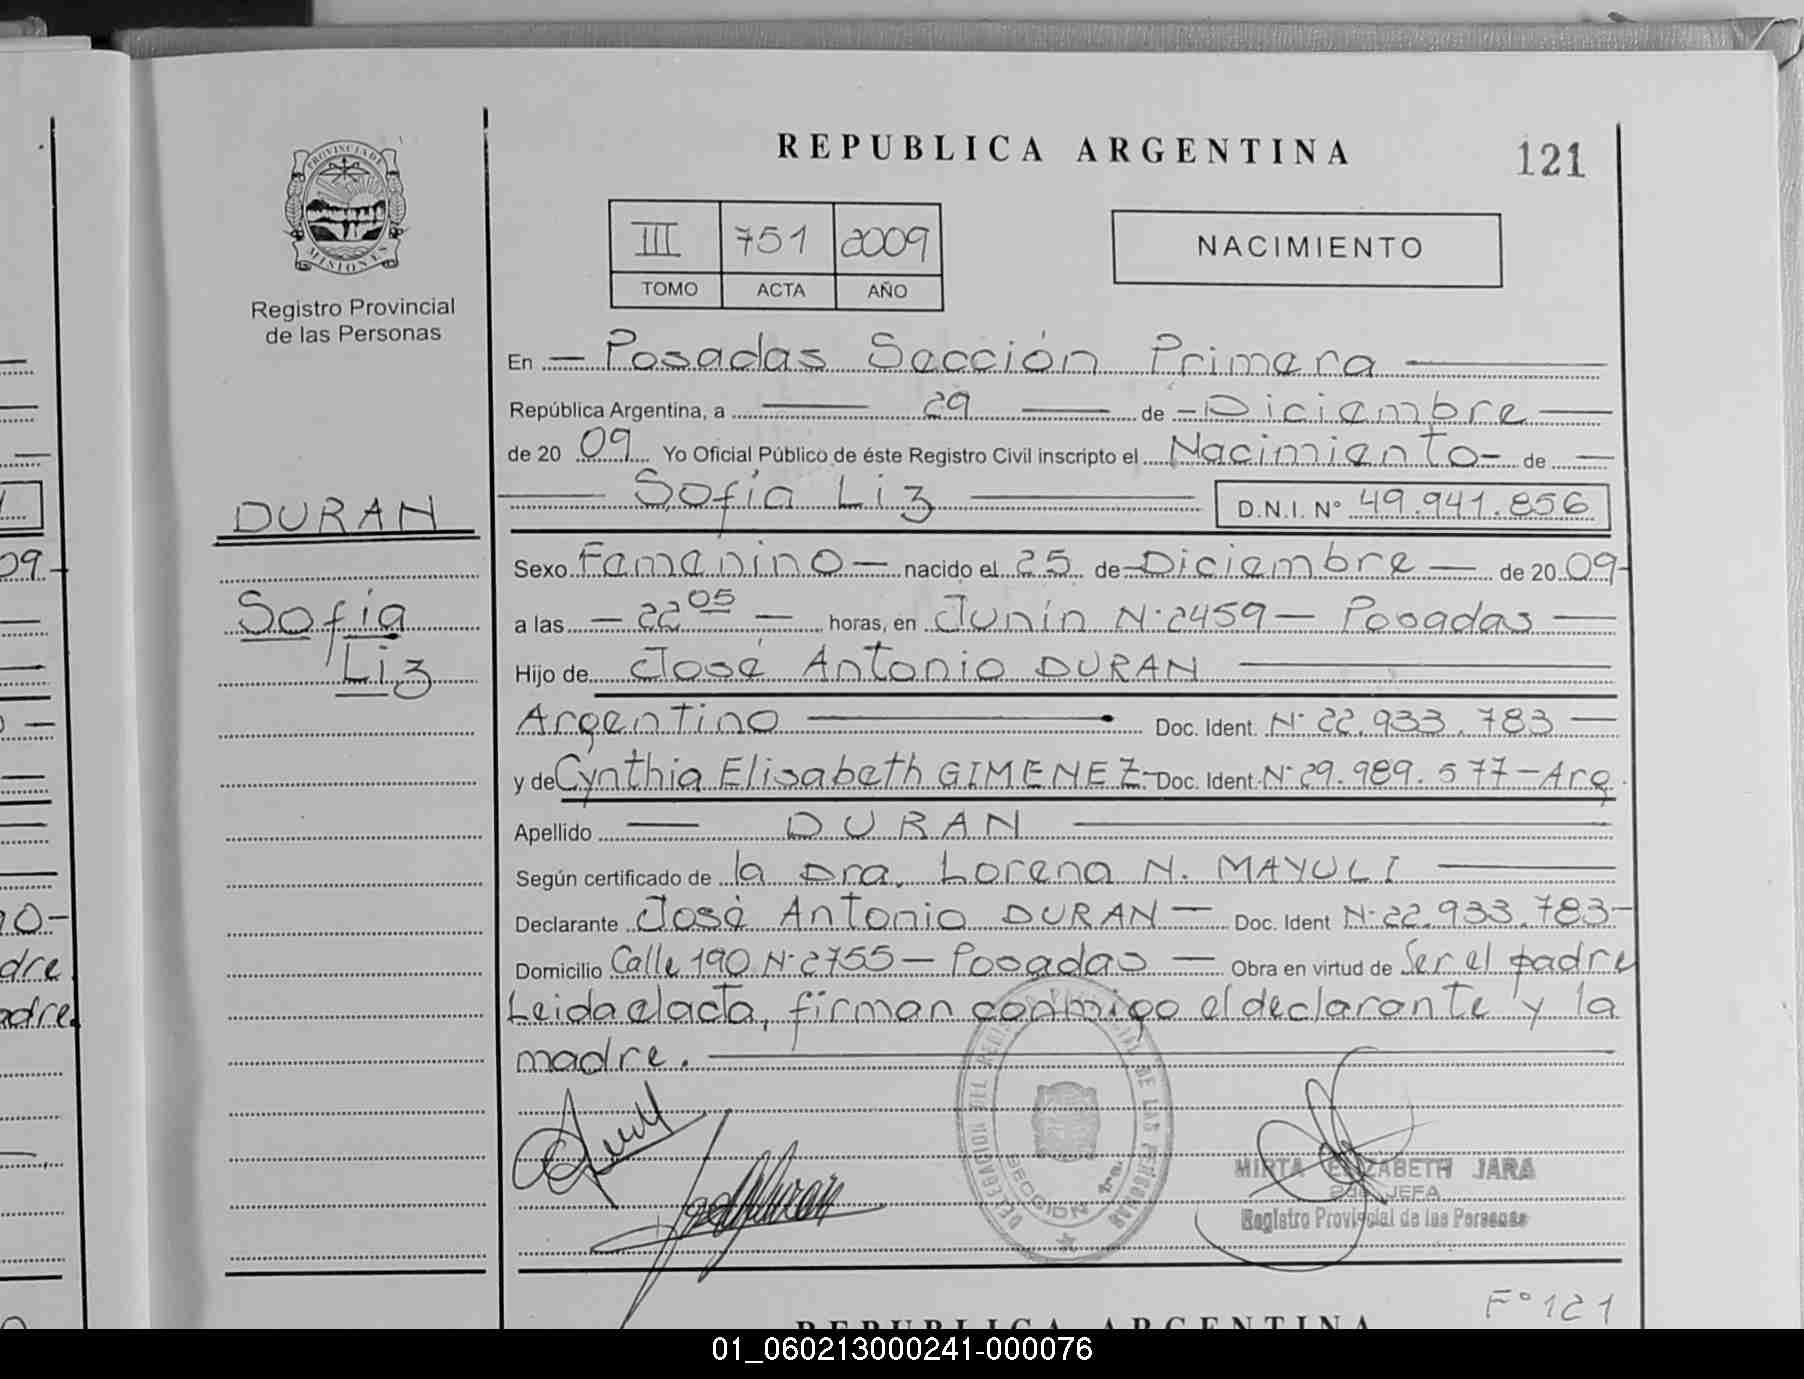 REPUBLICA ARGENTINA
121
PROVINCIA DE
MISIONES
Registro Provincial
de las Personas
III 751 2009
TOMO ACTA AÑO
NACIMIENTO
En — Posadas Sección Primera —
República Argentina, a — 29 — de — Diciembre —
de 20 09 Yo Oficial Público de éste Registro Civil inscripto el Nacimiento - de —
— Sofía Liz — D.N.I. N° 49.941.856
DURAN
Sofía
Liz
Sexo Femenino — nacido el 25 de — Diciembre — de 20 09 -
a las — 22 05 — horas, en Junín N° 2459 — Posadas —
Hijo de José Antonio DURAN —
Argentino — Doc. Ident. N° 22.933.783 —
y de Cynthia Elisabeth GIMENEZ - Doc. Ident. N° 29.989.577 - Arg.
Apellido — DURAN —
Según certificado de la Dra. Lorena N. MAYULI —
Declarante José Antonio DURAN — Doc. Ident N° 22.933.783 -
Domicilio Calle 190 N° 2755 — Posadas — Obra en virtud de Ser el padre
Leida el acta, firman conmigo el declarante y la
madre. —
DELEGACION DEL REGISTRO PROVINCIAL DE LAS PERSONAS
SECCION 1ra.
MIRTA ELIZABETH JARA
2da. JEFA
Registro Provincial de las Personas
F° 121
REPUBLICA ARGENTINA
01_060213000241-000076